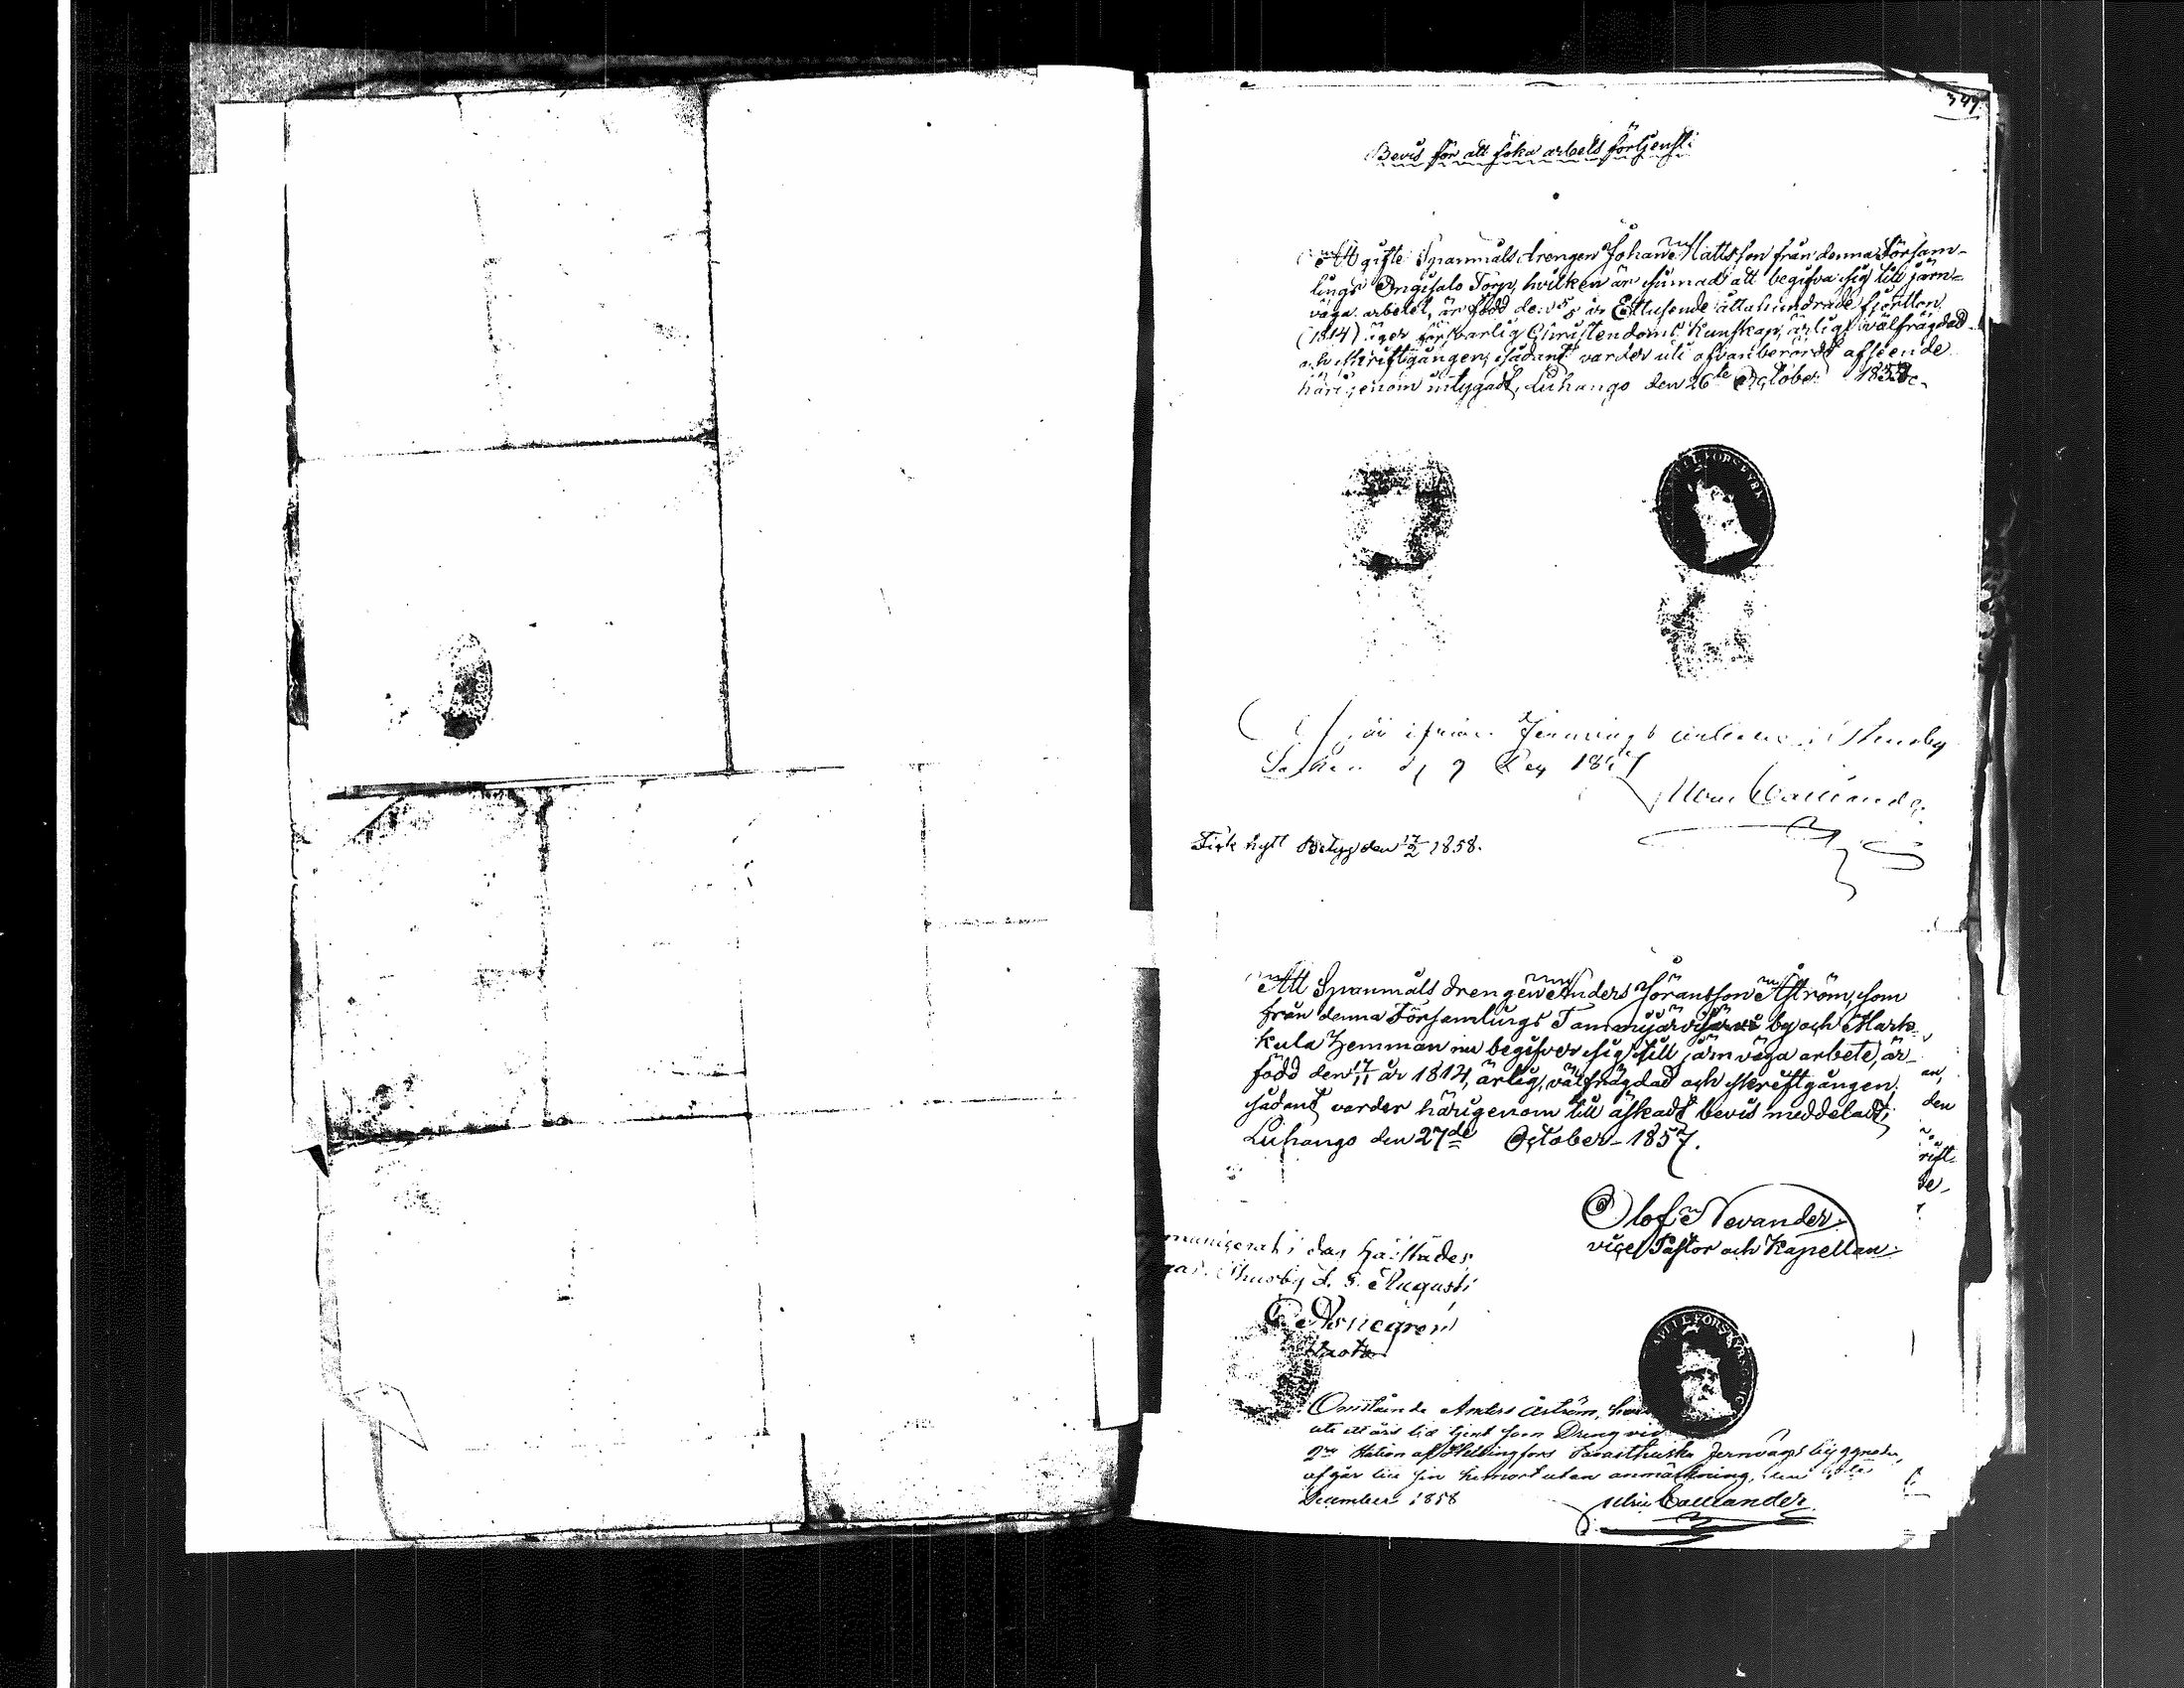 347.
Bevis för att söka arbets förtjenst:
Att gifte Spanmåls drengen Johan Mattsson från denna Försam-
lings Ongisalo Torp, hvilken är sinnad att begifva sig till järn-
väga arbetet, är född den 5 år Ettusende åttahundrade fjortton
(1814) äger försvarlig Christendoms Kunskap, ärlig, välfrägdad
och skriftgången, sådant varder uti ofvanberörde afseende
härigenom intygadt, Luhango den 26te October 1857
är ifrån Jernvägs arbetet i Thusby
Socken d 7 Dec 1857
Fick nytt Betyg den 17/2 1858.
Att Spanmåls drengen Anders Göransson Åström, som
från denna Församlings Tammijärvi by och Mark-
kula Hemman nu begifver sig till järnväga arbete, är
född den 17/11 år 1814, ärlig, välfrägdad och skriftgången.
sådant varder härigenom till äskadt bevis meddeladt;
Luhango den 27de October 1857.
Olof Nevander.
vice Pastor och Kapellan.
i dag härstädes
Thusby d. 5. Augusti
Omstående Anders Åström, har
ett års tid tjent som Dreng vid
2dra Station af Helsingfors Tavasthuska Jernvägs byggnaden,
afgår till sin hemort utan anmärkning, den
December 1858